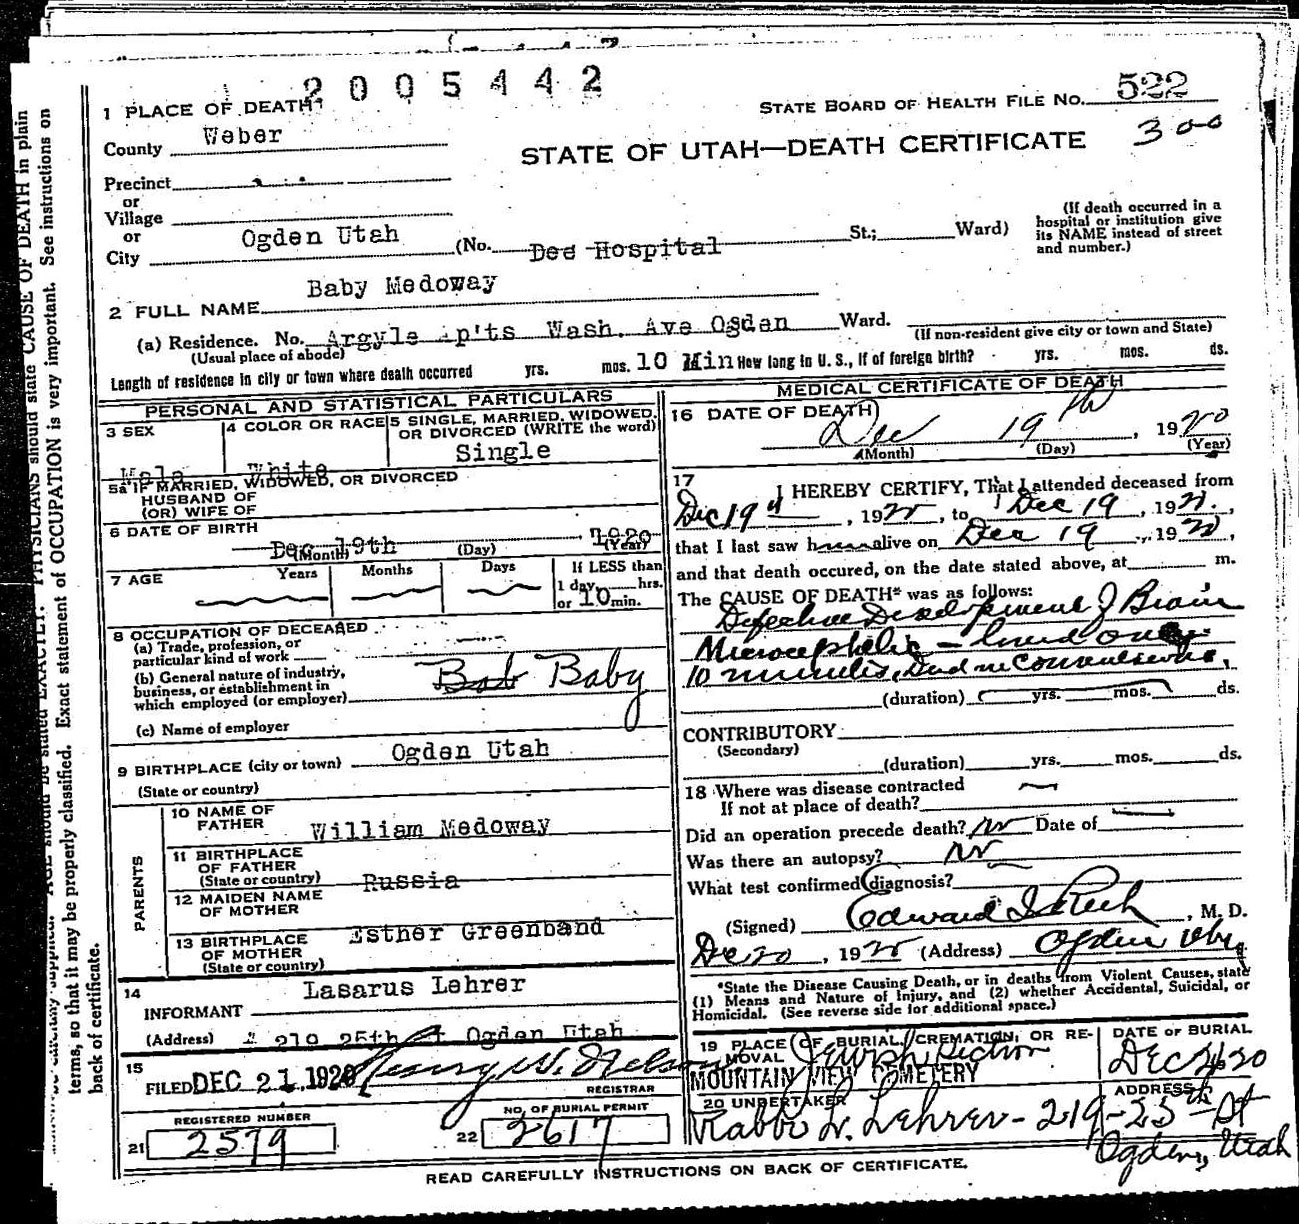 2005442
1 PLACE OF DEATH
STATE BOARD OF HEALTH FILE NO. 522
County Weber
STATE OF UTAH—DEATH CERTIFICATE
300
Precinct
or
Village
or
City Ogden Utah (No. Dee Hospital St.; Ward)
(If death occurred in a
hospital or institution give
its NAME instead of street
and number.)
2 FULL NAME Baby Medoway
(a) Residence. No. Argyle Ap'ts Wash. Ave Ogden Ward.
(Usual place of abode)
(If non-resident give city or town and State)
Length of residence in city or town where death occurred yrs. mos. 10 Min How long in U. S., if of foreign birth? yrs. mos. ds.
PERSONAL AND STATISTICAL PARTICULARS
3 SEX
Male
4 COLOR OR RACE
White
5 SINGLE, MARRIED, WIDOWED,
OR DIVORCED (WRITE the word)
Single
5a IF MARRIED, WIDOWED, OR DIVORCED
HUSBAND OF
(OR) WIFE OF
6 DATE OF BIRTH
Dec 19th 1920
(Month) (Day) (Year)
7 AGE Years Months Days
If LESS than
1 day hrs.
or 10 min.
8 OCCUPATION OF DECEASED
(a) Trade, profession, or
particular kind of work
(b) General nature of industry,
business, or establishment in
which employed (or employer) Baby
(c) Name of employer
9 BIRTHPLACE (city or town) Ogden Utah
(State or country)
PARENTS
10 NAME OF
FATHER William Medoway
11 BIRTHPLACE
OF FATHER
(State or country) Russia
12 MAIDEN NAME
OF MOTHER
Esther Greenband
13 BIRTHPLACE
OF MOTHER
(State or country)
14
INFORMANT Lasarus Lehrer
(Address) 219 25th St Ogden Utah
15
FILED DEC 21 1920 Henry W. Nelson
REGISTRAR
REGISTERED NUMBER
21 2579
NO. OF BURIAL PERMIT
22 2617
MEDICAL CERTIFICATE OF DEATH
16 DATE OF DEATH
Dec 19th, 1920
(Month) (Day) (Year)
17
I HEREBY CERTIFY, That I attended deceased from
Dec 19th, 1920, to Dec 19, 1920,
that I last saw him alive on Dec 19, 1920,
and that death occured, on the date stated above, at m.
The CAUSE OF DEATH* was as follows:
Defective Development of Brain
Microcephelic - lived only
10 minutes, Died in Convulsions.
(duration) yrs. mos. ds.
CONTRIBUTORY
(Secondary)
(duration) yrs. mos. ds.
18 Where was disease contracted
If not at place of death?
Did an operation precede death? No Date of
Was there an autopsy? No
What test confirmed diagnosis?
(Signed) Edward I. Rich, M. D.
Dec 20, 1920 (Address) Ogden Utah
*State the Disease Causing Death, or in deaths from Violent Causes, state
(1) Means and Nature of Injury, and (2) whether Accidental, Suicidal, or
Homicidal. (See reverse side for additional space.)
19 PLACE OF BURIAL, CREMATION, OR RE-
MOVAL Jewish Section
MOUNTAIN VIEW CEMETERY
DATE OF BURIAL
20 UNDERTAKER
Rabbi L. Lehrer - 219-25th St
ADDRESS
Ogden, Utah
READ CAREFULLY INSTRUCTIONS ON BACK OF CERTIFICATE.
PHYSICIANS should state CAUSE OF DEATH in plain
terms, so that it may be properly classified. Exact statement of OCCUPATION is very important. See instructions on
back of certificate.